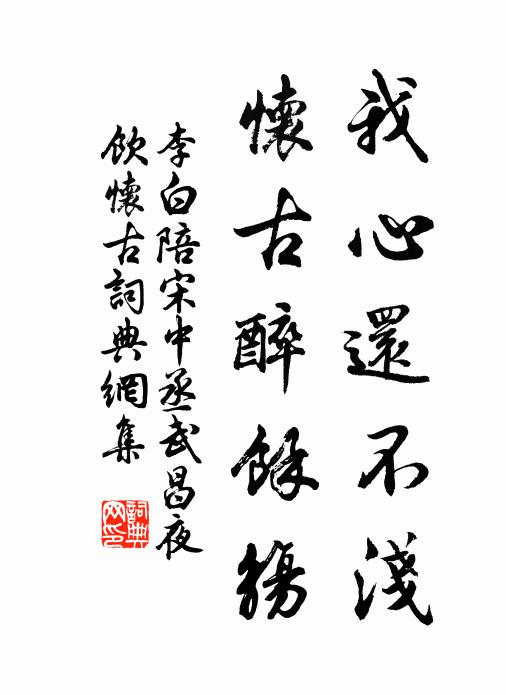 我心還不淺
懷古醉餘觴
李白陪宋中丞武昌夜
飲懷古詞典網集
詞典
网印